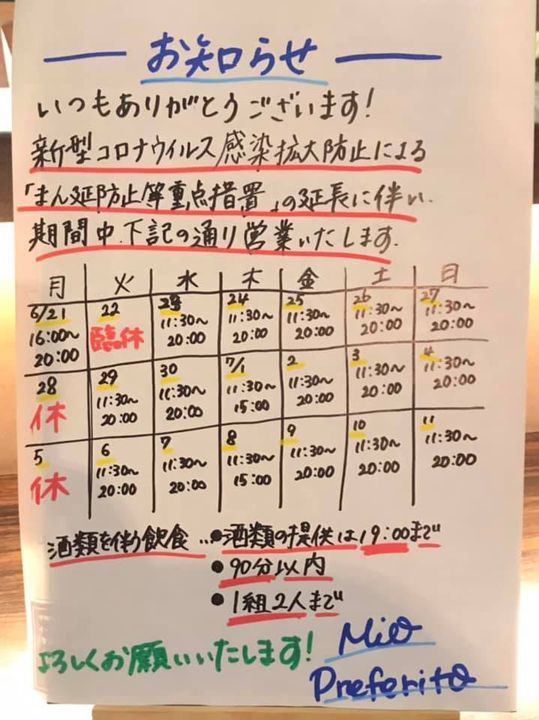 お知らせ
いつもありがとうございます!
新型コロナウイルス感染拡大防止による
「まん延防止等重点措置」の延長に伴い、
期間中、下記の通り営業いたします。
月 火 水 木 金 土 日
6/21 22 23 24 25 26 27
16:00～ 臨休 11:30～ 11:30～ 11:30～ 11:30～ 11:30～
20:00 20:00 20:00 20:00 20:00 20:00
28 29 30 7/1 2 3 4
休 11:30～ 11:30～ 11:30～ 11:30～ 11:30～ 11:30～
20:00 20:00 15:00 20:00 20:00 20:00
5 6 7 8 9 10 11
休 11:30～ 11:30～ 11:30～ 11:30～ 11:30～ 11:30～
20:00 20:00 15:00 20:00 20:00 20:00
酒類を伴う飲食…●酒類の提供は19:00まで
●90分以内
●1組2人まで
よろしくお願いいたします!
Mio
Preferito